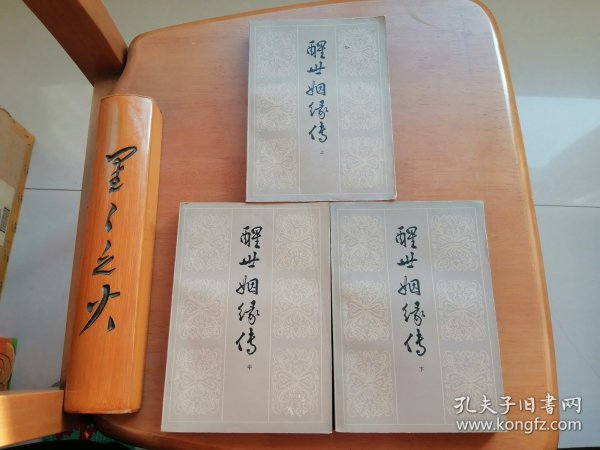 醒世姻缘传
上
醒世姻缘传
中
醒世姻缘传
下
星星之火
孔夫子旧书网
www.kongfz.com